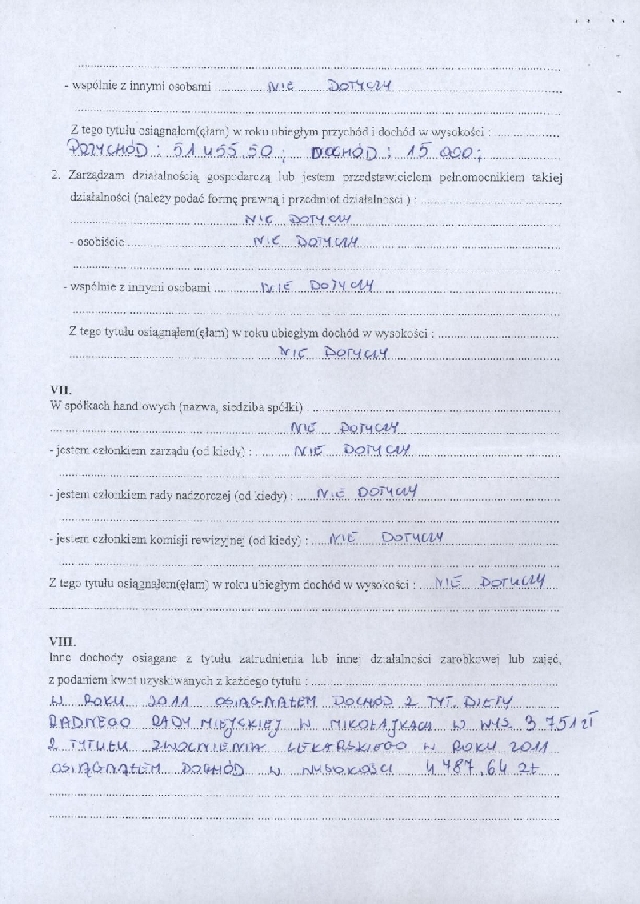 - wspólnie z innymi osobami ........ NIE DOTYCZY
Z tego tytułu osiągnąłem(ęłam) w roku ubiegłym przychód i dochód w wysokości : ........
PRZYCHÓD : 51 455 50 ; DOCHÓD : 15 000 ;
2. Zarządzam działalnością gospodarczą lub jestem przedstawicielem pełnomocnikiem takiej
działalności (należy podać formę prawną i przedmiot działalności ) : ........
NIE DOTYCZY
- osobiście ........ NIE DOTYCZY
- wspólnie z innymi osobami ........ NIE DOTYCZY
Z tego tytułu osiągnąłem(ęłam) w roku ubiegłym dochód w wysokości : ........
NIE DOTYCZY
VII.
W spółkach handlowych (nazwa, siedziba spółki) ........
NIE DOTYCZY
- jestem członkiem zarządu (od kiedy) : ........ NIE DOTYCZY
- jestem członkiem rady nadzorczej (od kiedy) : ........ NIE DOTYCZY
- jestem członkiem komisji rewizyjnej (od kiedy) : ........ NIE DOTYCZY
Z tego tytułu osiągnąłem(ęłam) w roku ubiegłym dochód w wysokości : ........ NIE DOTYCZY
VIII.
Inne dochody osiągane z tytułu zatrudnienia lub innej działalności zarobkowej lub zajęć,
z podaniem kwot uzyskiwanych z każdego tytułu : ........
W ROKU 2011 OSIĄGNĄŁEM DOCHÓD Z TYT. DIETY
RADNEGO RADY MIEJSKIEJ W MIKOŁAJKACH W WYS 3 751 zł
Z TYTUŁU ZWOLNIENIA LEKARSKIEGO W ROKU 2011
OSIĄGNĄŁEM DOCHÓD W WYSOKOŚCI 4 487,64 zł